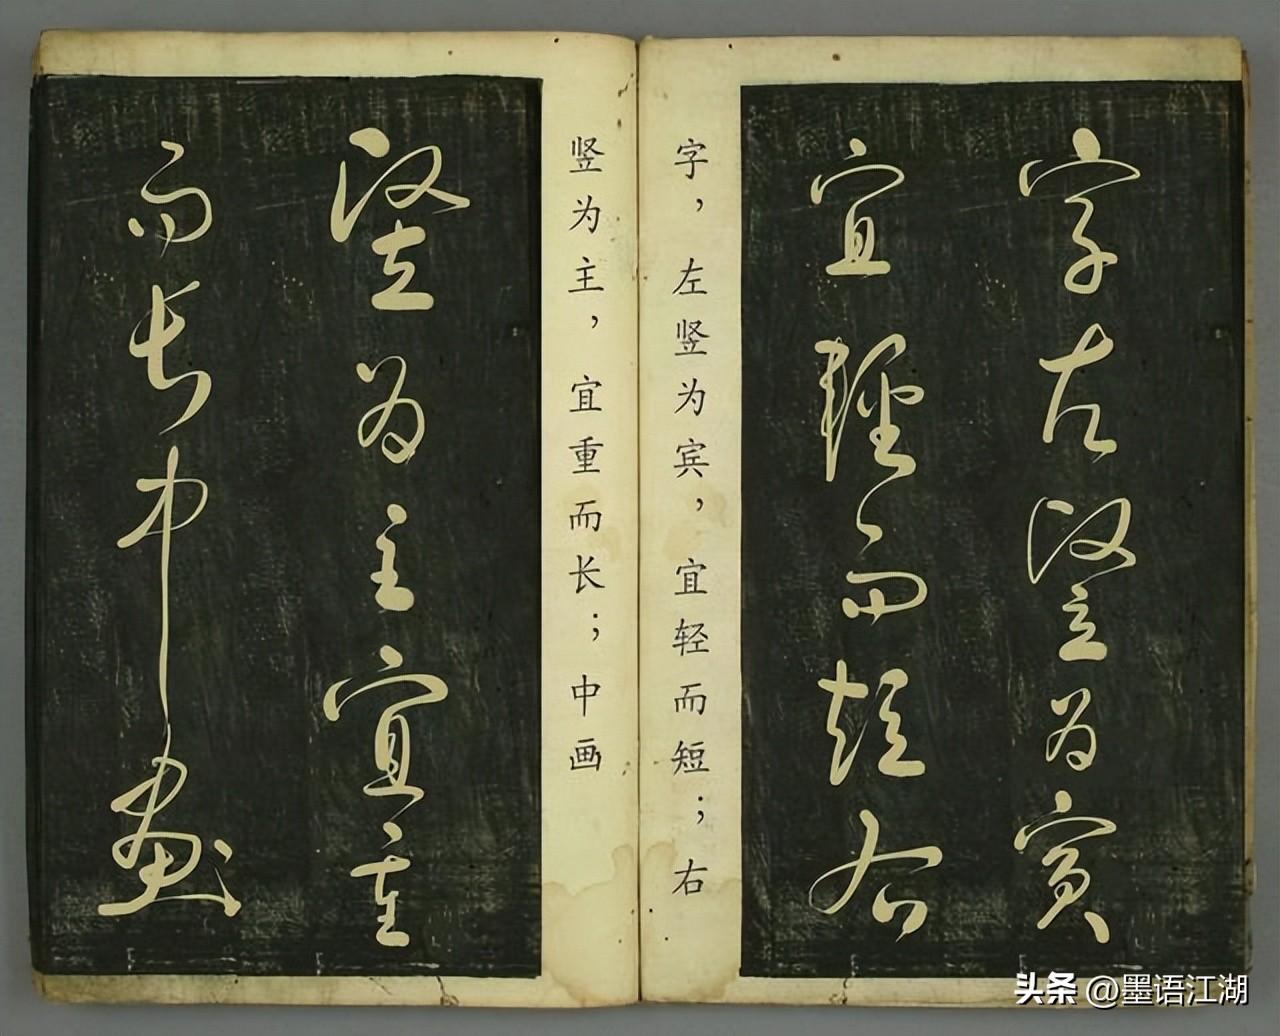 字左竖为賓
宜輕而短右
字，左竖为宾，宜轻而短；右
竖为主，宜重而长；中画
竖为主宜重
而长中画
头条 @墨语江湖